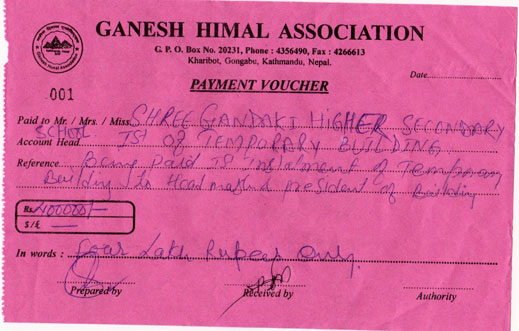 GANESH HIMAL ASSOCIATION
G. P. O. Box No. 20231, Phone : 4356490, Fax : 4266613
Kharibot, Gongabu, Kathmandu, Nepal.
PAYMENT VOUCHER
Date
001
Paid to Mr. / Mrs. / Miss. SHREE GANDAKI HIGHER SECONDARY
SCHOOL
Account Head IST OF TEMPORARY BUILDING
Reference being paid IST instalment of Temporary
Building to Headmaster & president of Building
Rs. 400000/-
$/£ —
In words : Four Lakh Rupees only.
Prepared by Received by Authority